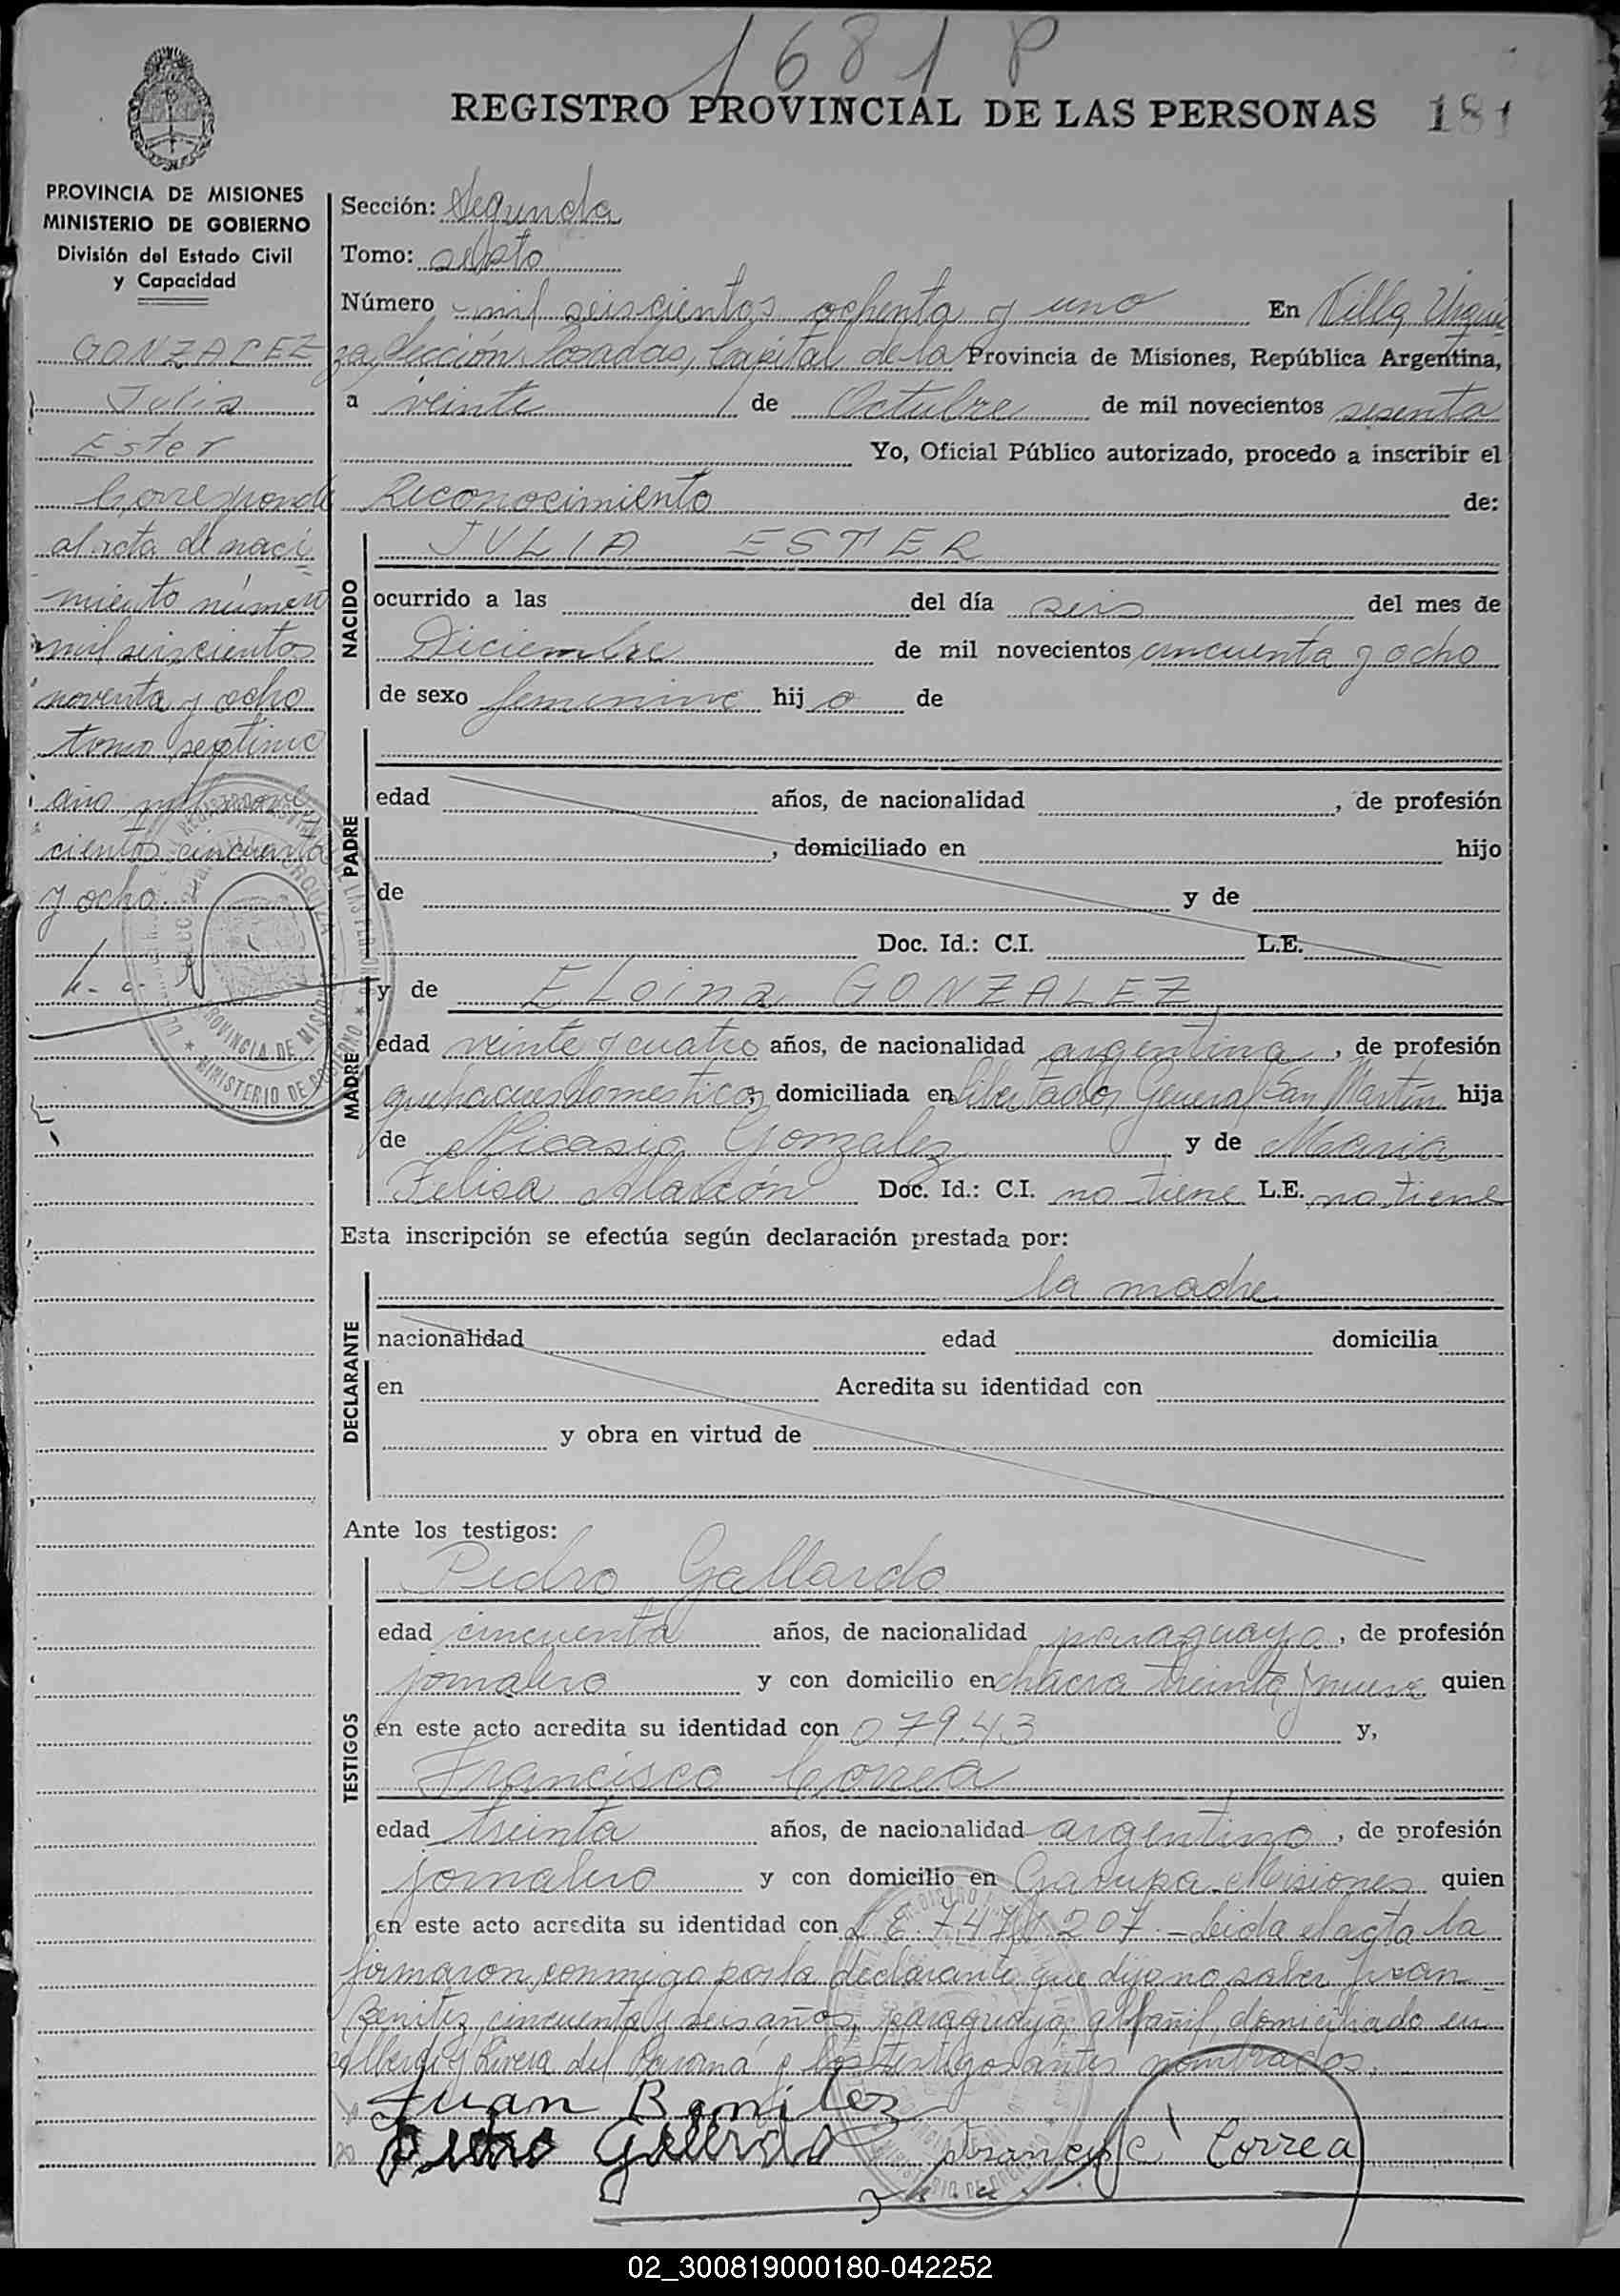 1681 P
REGISTRO PROVINCIAL DE LAS PERSONAS 181
PROVINCIA DE MISIONES
MINISTERIO DE GOBIERNO
División del Estado Civil
y Capacidad
GONZALEZ
Julia
Ester
Corresponde
al acta de naci
miento número
mil seiscientos
noventa y ocho
tomo septimo
año mil nove
cientos cincuenta
y ocho.
Sección: Segunda
Tomo: sexto
Número mil seiscientos ochenta y uno En Villa Urqui
za, Sección Posadas, Capital de la Provincia de Misiones, República Argentina,
a veinte de Octubre de mil novecientos sesenta
Yo, Oficial Público autorizado, procedo a inscribir el
Reconocimiento de:
NACIDO
JULIA ESTER
ocurrido a las del día seis del mes de
Diciembre de mil novecientos cincuenta y ocho
de sexo femenino hij a de
PADRE
edad años, de nacionalidad , de profesión
, domiciliado en hijo
de y de
Doc. Id.: C.I. L.E.
MADRE
y de ELoina GONZALEZ
edad veinte y cuatro años, de nacionalidad argentina, de profesión
quehaceres domesticos, domiciliada en Libertador General San Martín hija
de Nicasio Gonzalez y de Maria
Felisa Alarcón Doc. Id.: C.I. no tiene L.E. no tiene
Esta inscripción se efectúa según declaración prestada por:
DECLARANTE
la madre
nacionalidad edad domicilia
en Acredita su identidad con
y obra en virtud de
Ante los testigos:
TESTIGOS
Pedro Gallardo
edad cincuenta años, de nacionalidad paraguayo, de profesión
jornalero y con domicilio en chacra treinta y nueve quien
en este acto acredita su identidad con 07943 y,
Francisco Correa
edad treinta años, de nacionalidad argentino, de profesión
jornalero y con domicilio en Garupa Misiones quien
en este acto acredita su identidad con L.E. 7.471.207.- Leida el acta la
firmaron conmigo por la declarante que dijo no saber Juan
Benitez, cincuenta y seis años, paraguayo, albañil, domiciliado en
alberdi y Rivera del Paraná y los testigos antes nombrados.
Juan Benitez
Pedro Gallardo Francisc Correa
02_300819000180-042252